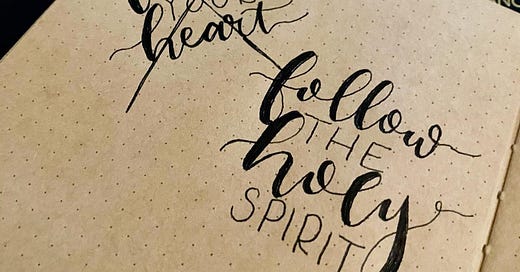 heart
follow
THE
holy
SPIRIT